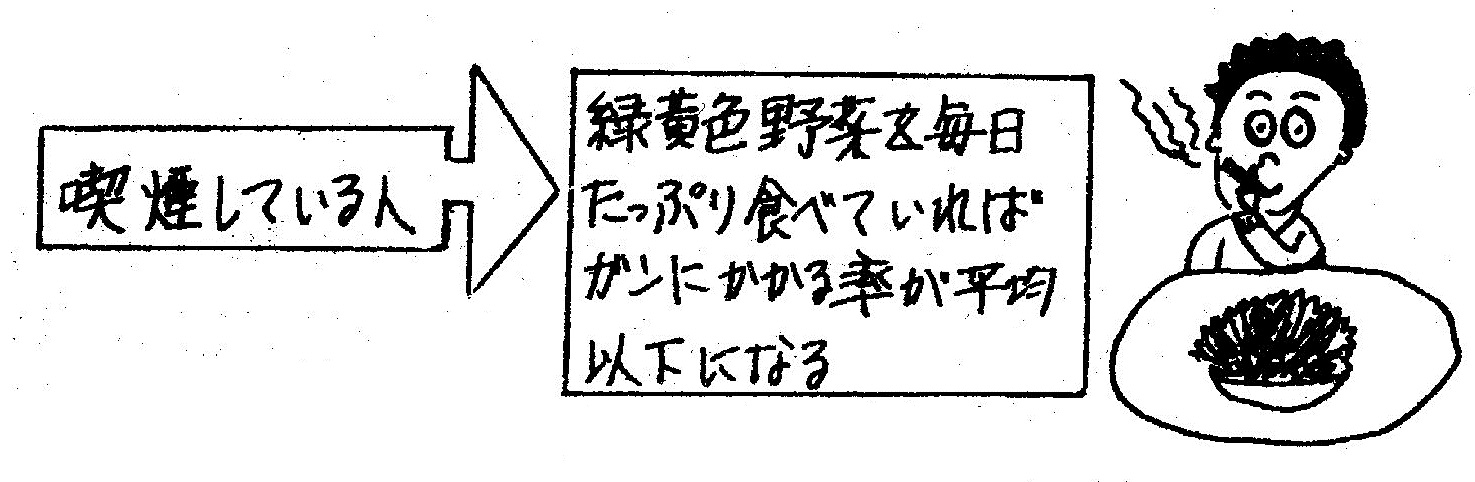 喫煙している人
緑黄色野菜を毎日
たっぷり食べていれば
ガンにかかる率が平均
以下になる